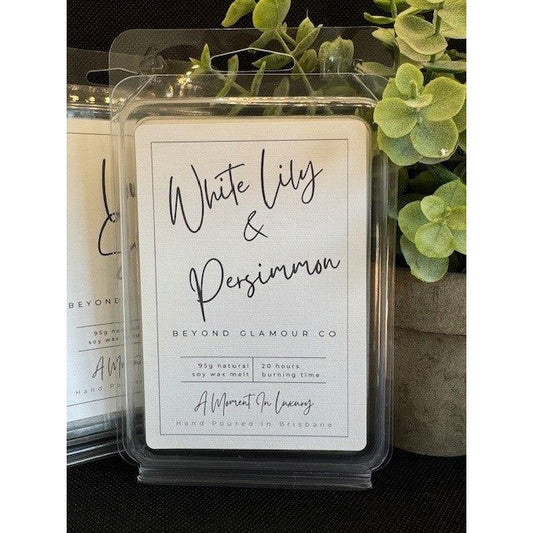 White Lily
&
Persimmon
BEYOND GLAMOUR CO
95g natural
soy wax melt
20 hours
burning time
A Moment In Luxury
Hand Poured In Brisbane
BEYOND
95g
soy wax
A Mom
Hand Pou